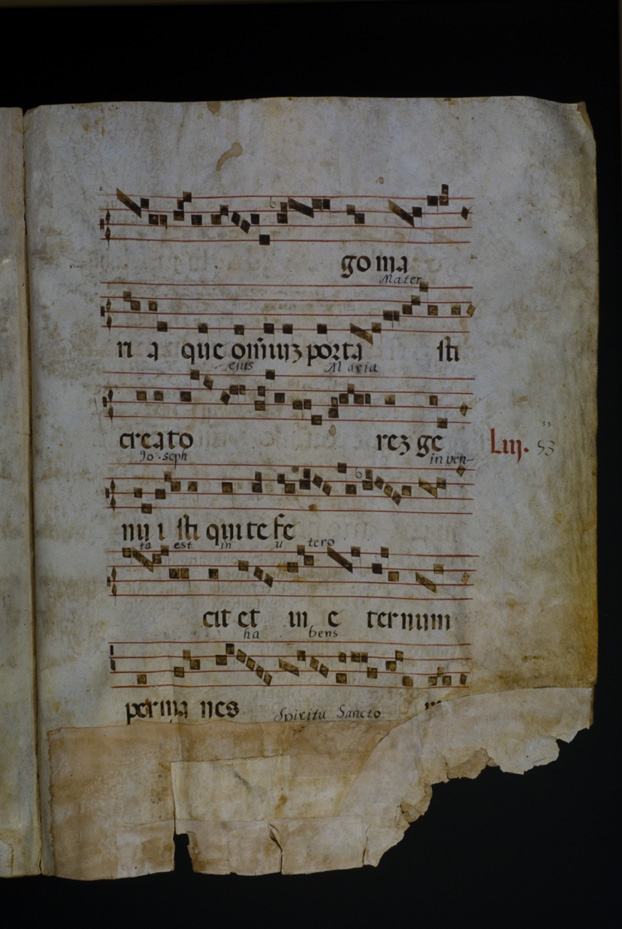 go ma
Mater
ri a que omniuz porta sti
ejus Maria
creato rez ge
Jo-seph inven-
Liij. 53
nu i sti qui te fe
ta est in utero
cit et in e ternum
ha bens
perma nes
Spiritu Sancto